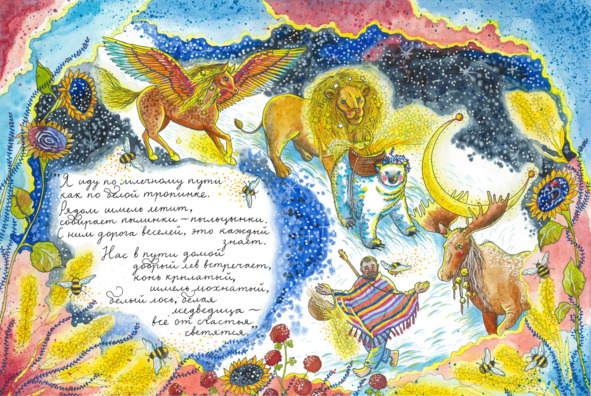 Я иду по млечному пути
как по белой тропинке.
Рядом шмель летит,
собирает пылинки-пыльцынки.
С ним дорога веселей, это каждый
знает.
Нас в пути домой
добрый лев встречает,
конь крылатый,
шмель мохнатый,
белый лось, белая
медведица –
все от счастья
светятся.